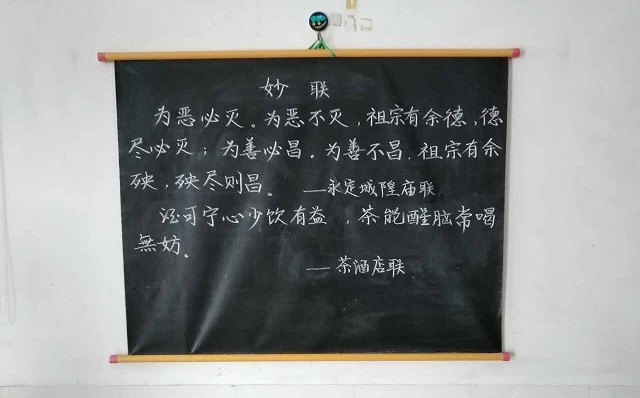 妙 联
为恶必灭。为恶不灭，祖宗有余德，德
尽必灭；为善必昌。为善不昌，祖宗有余
殃，殃尽则昌。 —永定城隍庙联
酒可宁心少饮有益，茶能醒脑常喝
無妨。
—茶酒店联